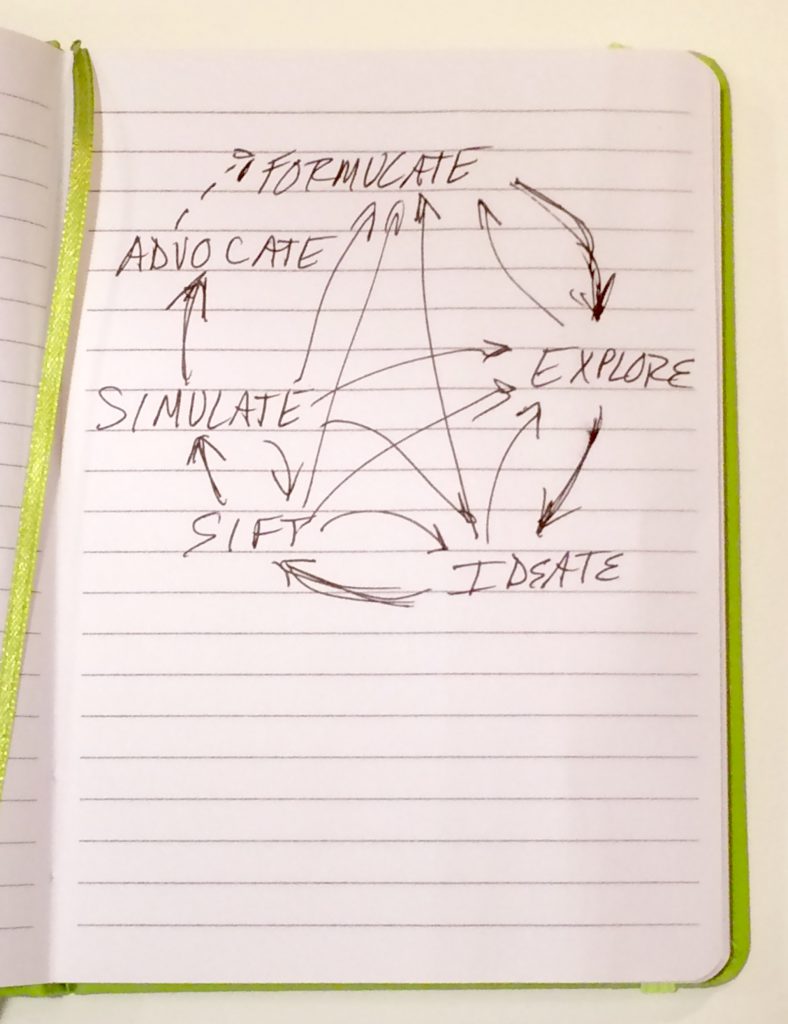 FORMULATE
ADVOCATE
EXPLORE
SIMULATE
SIFT
IDEATE